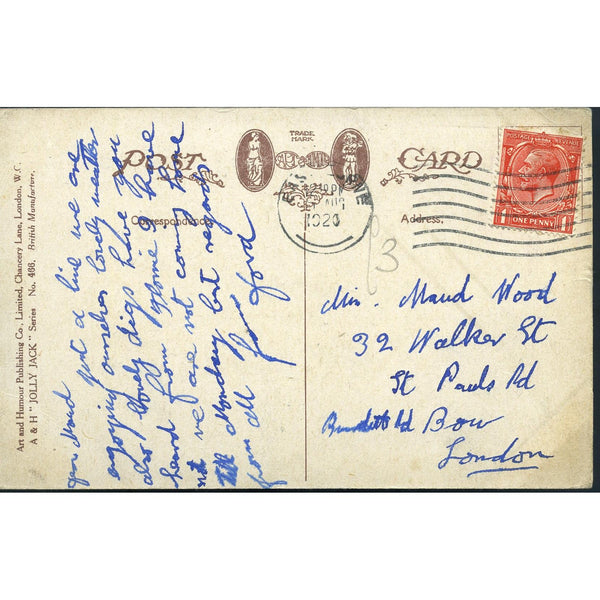 Art and Humour Publishing Co., Limited, Chancery Lane, London, W.C.
A & H "JOLLY JACK" Series No. 466. British Manufacture.
TRADE
MARK
POST CARD
Correspondence.
Address.
AUG
1920
POSTAGE REVENUE
ONE PENNY
1/3
Maud just a line we are
enjoying ourselves lovely weather
also lovely digs have you
heard from Tyrome I have
not we are not coming home
till Monday best regards
from all
Miss. Maud Wood
32 Walker St
St Pauls Rd
Burdett Rd Bow
London